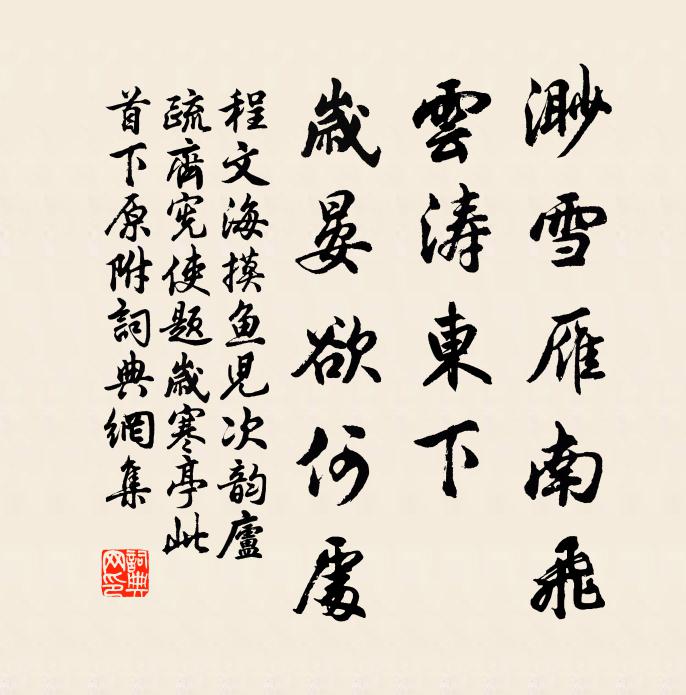 渺雪雁南飛
雲涛東下
歲晏欲何處
程文海摸魚兒次韵廬
疏齊宪使題歲寒亭此
首下原附詞典網集
詞典网印